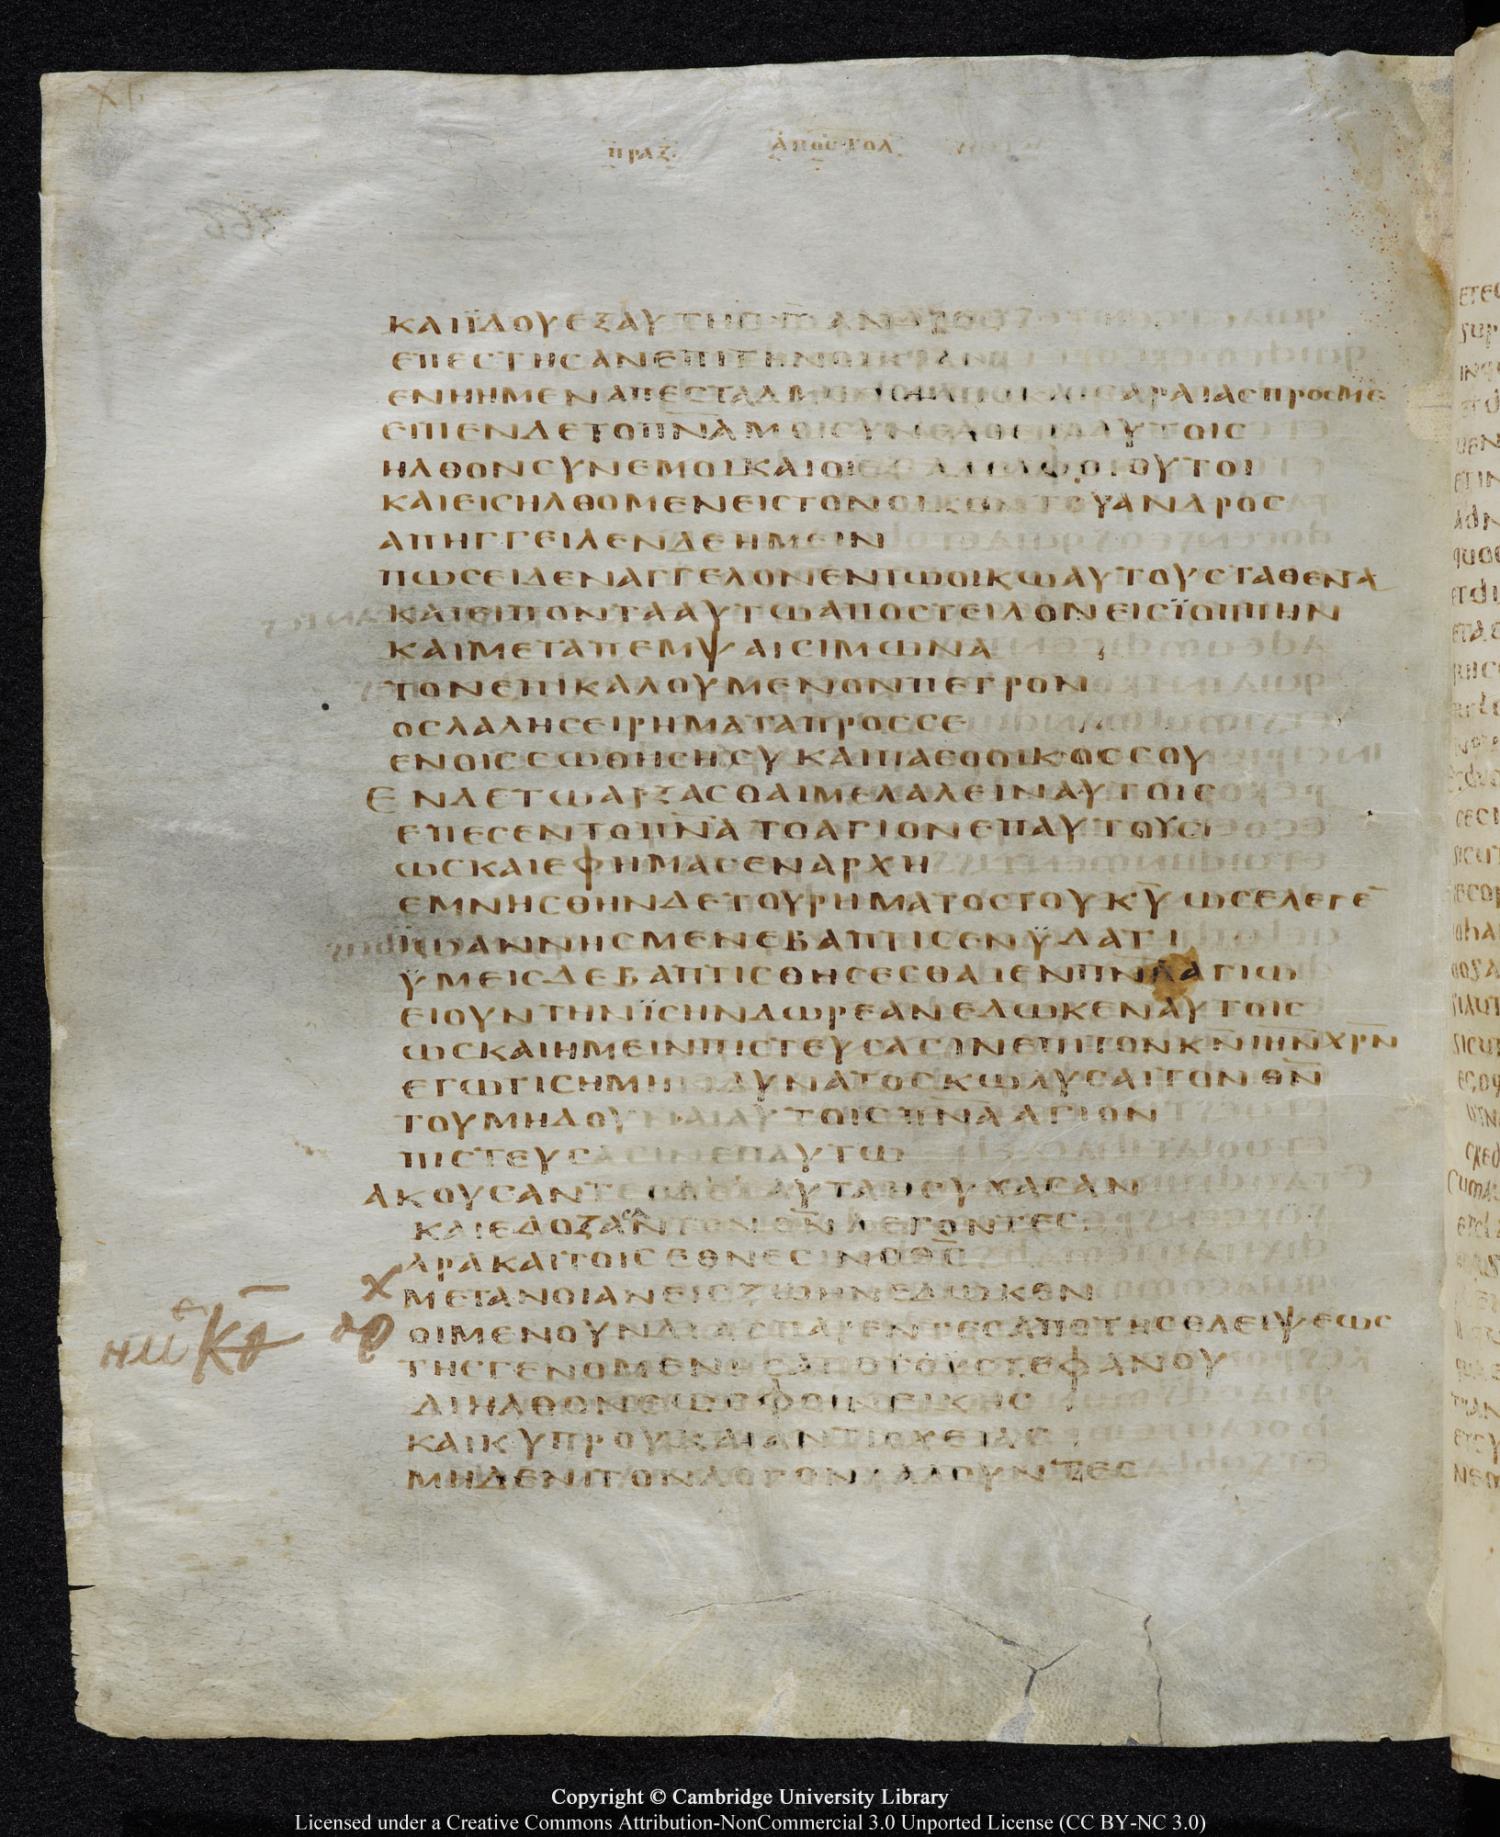 πραξ αποστολ
ΚΑΙ ΪΔΟΥ ΕΞΑΥΤΗΣ Γ̅ ΑΝΔΡΕΣ
ΕΠΕCΤΗCΑΝ ΕΠΙ ΤΗΝ ΟΙΚΕΙΑΝ
ΕΝ Η ΗΜΕΝ ΑΠΕCΤΑΛΜΕΝΟΙ ΑΠΟ ΚΑΙCΑΡΑΙΑC ΠΡΟC ΜΕ
ΕΙΠΕΝ ΔΕ ΤΟ Π̅Ν̅Α̅ ΜΟΙ CΥΝΕΛΘΕΙΝ ΑΥΤΟΙC
ΗΛΘΟΝ CΥΝ ΕΜΟΙ ΚΑΙ ΟΙ ΕΞ ΑΔΕΛΦΟΙ ΟΥΤΟΙ
ΚΑΙ ΕΙCΗΛΘΟΜΕΝ ΕΙC ΤΟΝ ΟΙΚΟΝ ΤΟΥ ΑΝΔΡΟC
ΑΠΗΓΓΕΙΛΕΝ ΔΕ ΗΜΕΙΝ
ΠΩC ΕΙΔΕΝ ΑΓΓΕΛΟΝ ΕΝ ΤΩ ΟΙΚΩ ΑΥΤΟΥ CΤΑΘΕΝΤΑ
ΚΑΙ ΕΙΠΟΝΤΑ ΑΥΤΩ ΑΠΟCΤΕΙΛΟΝ ΕΙC ΪΟΠΠΗΝ
ΚΑΙ ΜΕΤΑΠΕΜΨΑΙ CΙΜΩΝΑ
ΤΟΝ ΕΠΙΚΑΛΟΥΜΕΝΟΝ ΠΕΤΡΟΝ
ΟC ΛΑΛΗCΕΙ ΡΗΜΑΤΑ ΠΡΟC CΕ
ΕΝ ΟΙC CΩΘΗCΗ CΥ ΚΑΙ ΠΑC Ο ΟΙΚΟC CΟΥ
ΕΝ ΔΕ ΤΩ ΑΡΞΑCΘΑΙ ΜΕ ΛΑΛΕΙΝ ΑΥΤΟΙC
ΕΠΕCΕΝ ΤΟ Π̅Ν̅Α̅ ΤΟ ΑΓΙΟΝ ΕΠ ΑΥΤΟΥC
ΩC ΚΑΙ ΕΦ ΗΜΑC ΕΝ ΑΡΧΗ
ΕΜΝΗCΘΗΝ ΔΕ ΤΟΥ ΡΗΜΑΤΟC ΤΟΥ Κ̅Υ̅ ΩC ΕΛΕΓΕ̅
ΪΩΑΝΝΗC ΜΕΝ ΕΒΑΠΤΙCΕΝ ΫΔΑΤΙ
ΫΜΕΙC ΔΕ ΒΑΠΤΙCΘΗCΕCΘΑΙ ΕΝ Π̅Ν̅Ι̅ ΑΓΙΩ
ΕΙ ΟΥΝ ΤΗΝ ΪCΗΝ ΔΩΡΕΑΝ ΕΔΩΚΕΝ ΑΥΤΟΙC
ΩC ΚΑΙ ΗΜΕΙΝ ΠΙCΤΕΥCΑCΙΝ ΕΠΙ ΤΟΝ Κ̅Ν̅ ΙΗ̅Ν̅ ΧΡ̅Ν̅
ΕΓΩ ΤΙC ΗΜΗΝ ΔΥΝΑΤΟC ΚΩΛΥCΑΙ ΤΟΝ Θ̅Ν̅
ΤΟΥ ΜΗ ΔΟΥΝΑΙ ΑΥΤΟΙC Π̅Ν̅Α̅ ΑΓΙΟΝ
ΠΙCΤΕΥCΑCΙΝ ΕΠ ΑΥΤΩ
ΑΚΟΥCΑΝΤΕC ΔΕ ΤΑΥΤΑ ΗCΥΧΑCΑΝ
ΚΑΙ ΕΔΟΞΑCΑΝ ΤΟΝ Θ̅Ν̅ ΛΕΓΟΝΤΕC
ΑΡΑ ΚΑΙ ΤΟΙC ΕΘΝΕCΙΝ Ο Θ̅C̅
ΜΕΤΑΝΟΙΑΝ ΕΙC ΖΩΗΝ ΕΔΩΚΕΝ
ΟΙ ΜΕΝ ΟΥΝ ΔΙΑCΠΑΡΕΝΤΕC ΑΠΟ ΤΗC ΘΛΕΙΨΕΩC
ΤΗC ΓΕΝΟΜΕΝΗC ΑΠΟ ΤΟΥ CΤΕΦΑΝΟΥ
ΔΙΗΛΘΟΝ ΕΩC ΦΟΙΝΕΙΚΗC
ΚΑΙ ΚΥΠΡΟΥ ΚΑΙ ΑΝΤΙΟΧΕΙΑC
ΜΗΔΕΝΙ ΤΟΝ ΛΟΓΟΝ ΛΑΛΟΥΝΤΕC
Copyright © Cambridge University Library
Licensed under a Creative Commons Attribution-NonCommercial 3.0 Unported License (CC BY-NC 3.0)